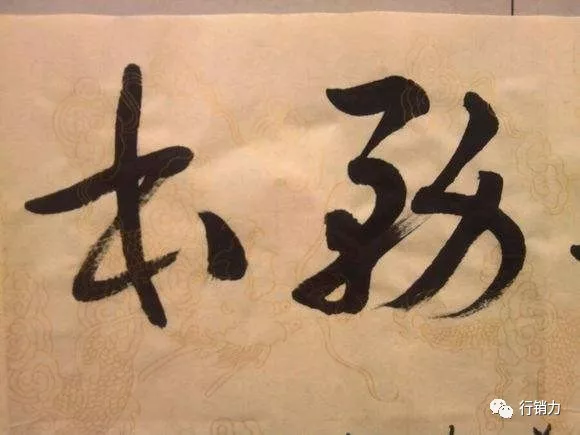 務本
行销力